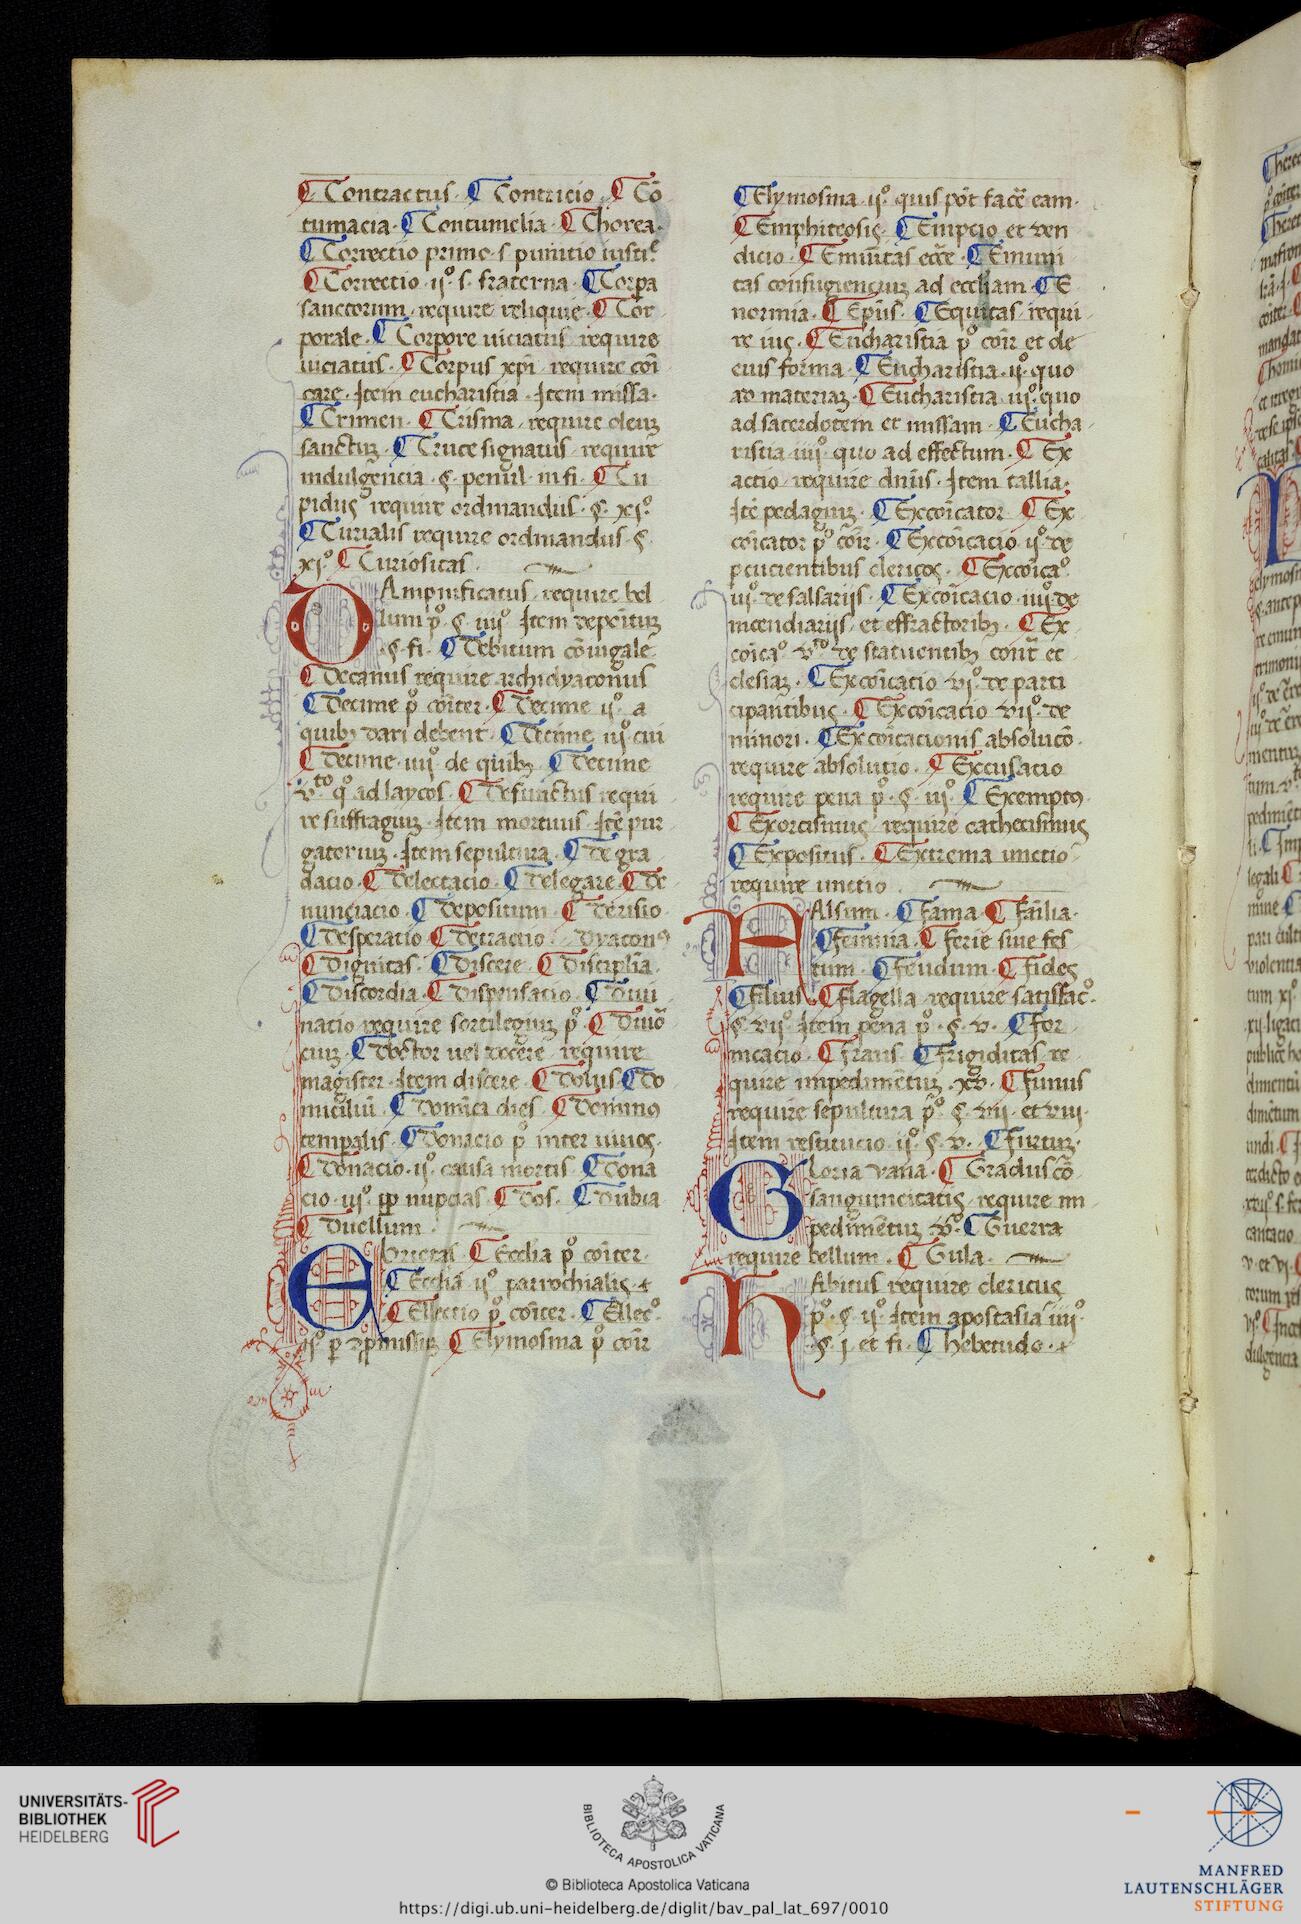 ¶ Contractus · ¶ Contricio · ¶ Cõ
tumacia · ¶ Contumelia · ¶ Chorea ·
¶ Correctio primo · s · punitio iusti
¶ Correctio ijº · s · fraterna · ¶ Corpa
sanctorum · require reliquie · ¶ Cor
porale · ¶ Corpore uiciatus require
uiciatus · ¶ Corpus xp̃i · require
Item eucharistia · Item missa ·
¶ Crimen · ¶ Crisma · require oleuꝫ
sanctuꝫ · ¶ Cruce signatus require
indulgẽcia · §· penul · in fi · ¶ Cu
pidus require ordinandus · §· xjº
¶ Curialis require ordinandus §·
xjº ¶ Curiositas ·
DAmpnificatus · require bel
lum pº · §· iiijº Item
· §· fi · ¶ Debitum cõiugale
¶ Decanus require archidyaconus
¶ Decime pº cõiter · ¶ Decime ijº · a
quibꝫ dari debent · ¶ Decime iijº cui
¶ Decime · iiijº de quibꝫ · ¶ Decime
vto qº ad laycos · ¶ Defunctus requi
re suffragiuꝫ · Item mortuus · Itẽ pur
gatoriuꝫ · Item sepultura · ¶ Degra
dacio · ¶ Delectacio · ¶ Delegare · ¶ De
nunciacio · ¶ Depositum · ¶ Derisio
¶ Desperatio · ¶ Detractio · Dyaconꝰ
¶ Dignitas · ¶ Discere · ¶ Disciplĩa ·
¶ Discordia · ¶ Dispensatio · ¶ Diui
natio require sortilegiuꝫ pº · ¶ Diuõ
ciuꝫ · ¶ Doctor uel docere require
magister · Item discere · ¶ Dolus · ¶ Do
miciliũ · ¶ Domĩca dies · ¶ Dominꝰ
temporalis · ¶ Donacio pº inter uiuos ·
¶ Donacio · ijº · causa mortis · ¶ Dona
cio · iijº · ꝓp nupcias · ¶ Dos · ¶ Dubia
¶ Duellum ·
EBrietas · ¶ Ecclia pº cõiter ·
¶ Ecclia ijº parrochialis ·
¶ Ellectio pº cõiter · ¶ Ellecº
ijº · ¶ Elymosina pº cõit̃
¶ Elymosina · ijº · quis põt facẽ eam ·
¶ Emphiteosis · ¶ Empcio et ven
dicio · ¶ Emũitas ecce · ¶ Emuni
tas confugienciuꝫ ad eccliam · ¶ E
normia · ¶ Ep̃us · ¶ Equitas requi
re ius · ¶ Eucharistia pº cõit̃ et de
eius forma · ¶ Eucharistia · ijº · quo
ad materiaꝫ · ¶ Eucharistia iijº · quo
ad sacerdotem et missam · ¶ Eucha
ristia · iiijº · quo ad effectum · ¶ Ex
actio require dñus · Item tallia ·
Itẽ pedagiuꝫ · ¶ Excõicator ¶ Ex
cõicator pº cõit̃ · ¶ Excõicacio ijº · de
pcucientibus clericos · ¶ Excõicaº
iijº · de falsariis · ¶ Excõicacio · iiijº de
incendiariis et effractoribꝫ · ¶ Ex
cõicaº vto de statuentibꝫ cont̃ ec
clesiaꝫ · ¶ Excõicacio vjº · de parti
cipantibus · ¶ Excõicacio vijº · de
minori · ¶ Excõicacionis absolucõ
require absolutio · ¶ Excusatio
require pena pº · §· iijº · ¶ Exemptꝰ
¶ Exorcismus require cathecismus
¶ Expositus · ¶ Extrema unctio
require unctio ·
FAlsum · ¶ Fama · ¶ Familia ·
¶ Femina · ¶ Ferie siue fes
tum · ¶ Feudum · ¶ Fides
¶ Filius · ¶ Flagella require satisfacº ·
§· vijº · Item pena pº · §· v · ¶ For
nicacio · ¶ Fraus · ¶ Frigiditas re
quire impedimẽtuꝫ · xv · ¶ Funus
require sepultura pº · §· vii · et viii ·
Item restitucio ijº · §· v · ¶ Furtuꝫ ·
GLoria vana · ¶ Gradus cõ
sanguineitatis require im
pedimẽtuꝫ vº · ¶ Guerra
require bellum · ¶ Gula ·
HAbitus require clericus
pº · §· ijº · Item apostasia iiijº ·
§· j · et fi · ¶ Hebetudo ·
UNIVERSITÄTS-
BIBLIOTHEK
HEIDELBERG
BIBLIOTECA APOSTOLICA VATICANA
© Biblioteca Apostolica Vaticana
https://digi.ub.uni-heidelberg.de/diglit/bav_pal_lat_697/0010
MANFRED
LAUTENSCHLÄGER
STIFTUNG